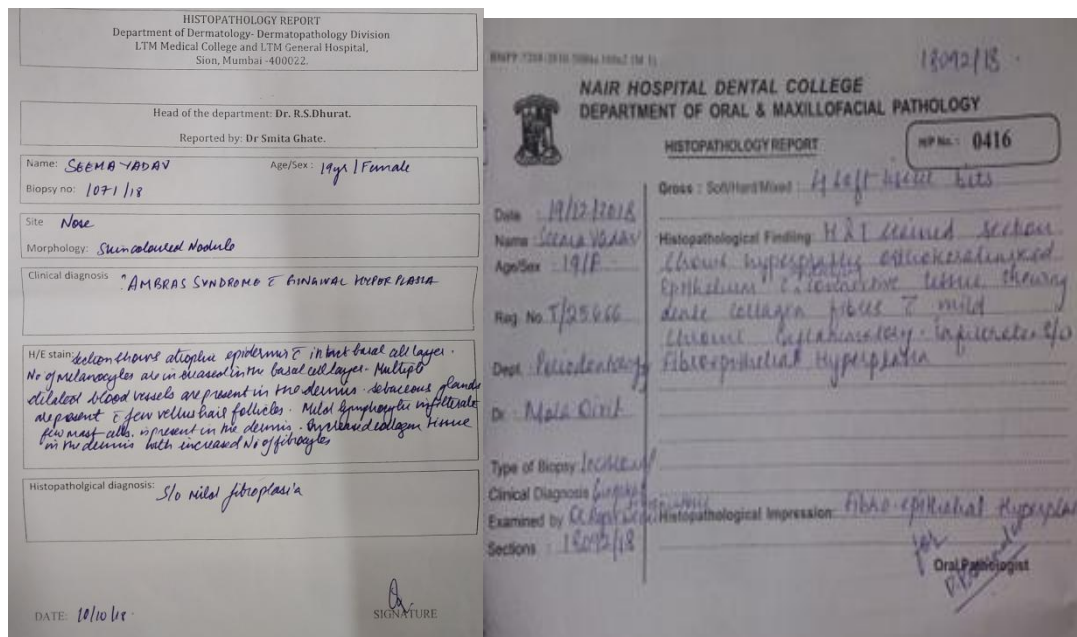 HISTOPATHOLOGY REPORT
Department of Dermatology- Dermatopathology Division
LTM Medical College and LTM General Hospital,
Sion, Mumbai -400022.
Head of the department: Dr. R.S.Dhurat.
Reported by: Dr Smita Ghate.
Name: SEEMA YADAV Age/Sex : 19yr / Female
Biopsy no: 1071/18
Site Nose
Morphology: Skincoloured Nodule
Clinical diagnosis : AMBRAS SYNDROME c GINGIVAL HYPERPLASIA
H/E stain: Section shows atrophic epidermis c intact basal cell layer.
No of melanocytes are increased in the basal cell layer. Multiple
dilated blood vessels are present in the dermis. Sebaceous glands
are present c few vellus hair follicles. Mild lymphocytic infiltrate
few mast cells. is present in the dermis. Increased collagen tissue
in the dermis with increased No of fibrocytes
Histopatholgical diagnosis: S/o Mild fibroplasia
DATE: 10/10/18.
SIGNATURE
18092/18
NAIR HOSPITAL DENTAL COLLEGE
DEPARTMENT OF ORAL & MAXILLOFACIAL PATHOLOGY
HISTOPATHOLOGY REPORT
H/P No. : 0416
Gross : Soft/Hard/Mixed : 4 soft tissue bits
Date : 19/12/2018
Name : Seema Yadav
Age/Sex : 19/F
Reg. No. T/25666
Dept. Periodontology
Dr.
Type of Biopsy
Clinical Diagnosis
Examined by
Sections : 18092/18
Histopathological Finding: H & E stained section
shows hyperplastic orthokeratinized
epithelium c connective tissue showing
dense collagen fibres c mild
chronic inflammatory infiltrate s/o
Fibroepithelial Hyperplasia
Histopathological Impression: Fibro-epithelial Hyperplas
for
Oral Pathologist